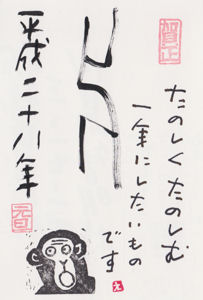 賀正
たのしくたのしむ
一年にしたいもの
です
平成二十八年
元旦